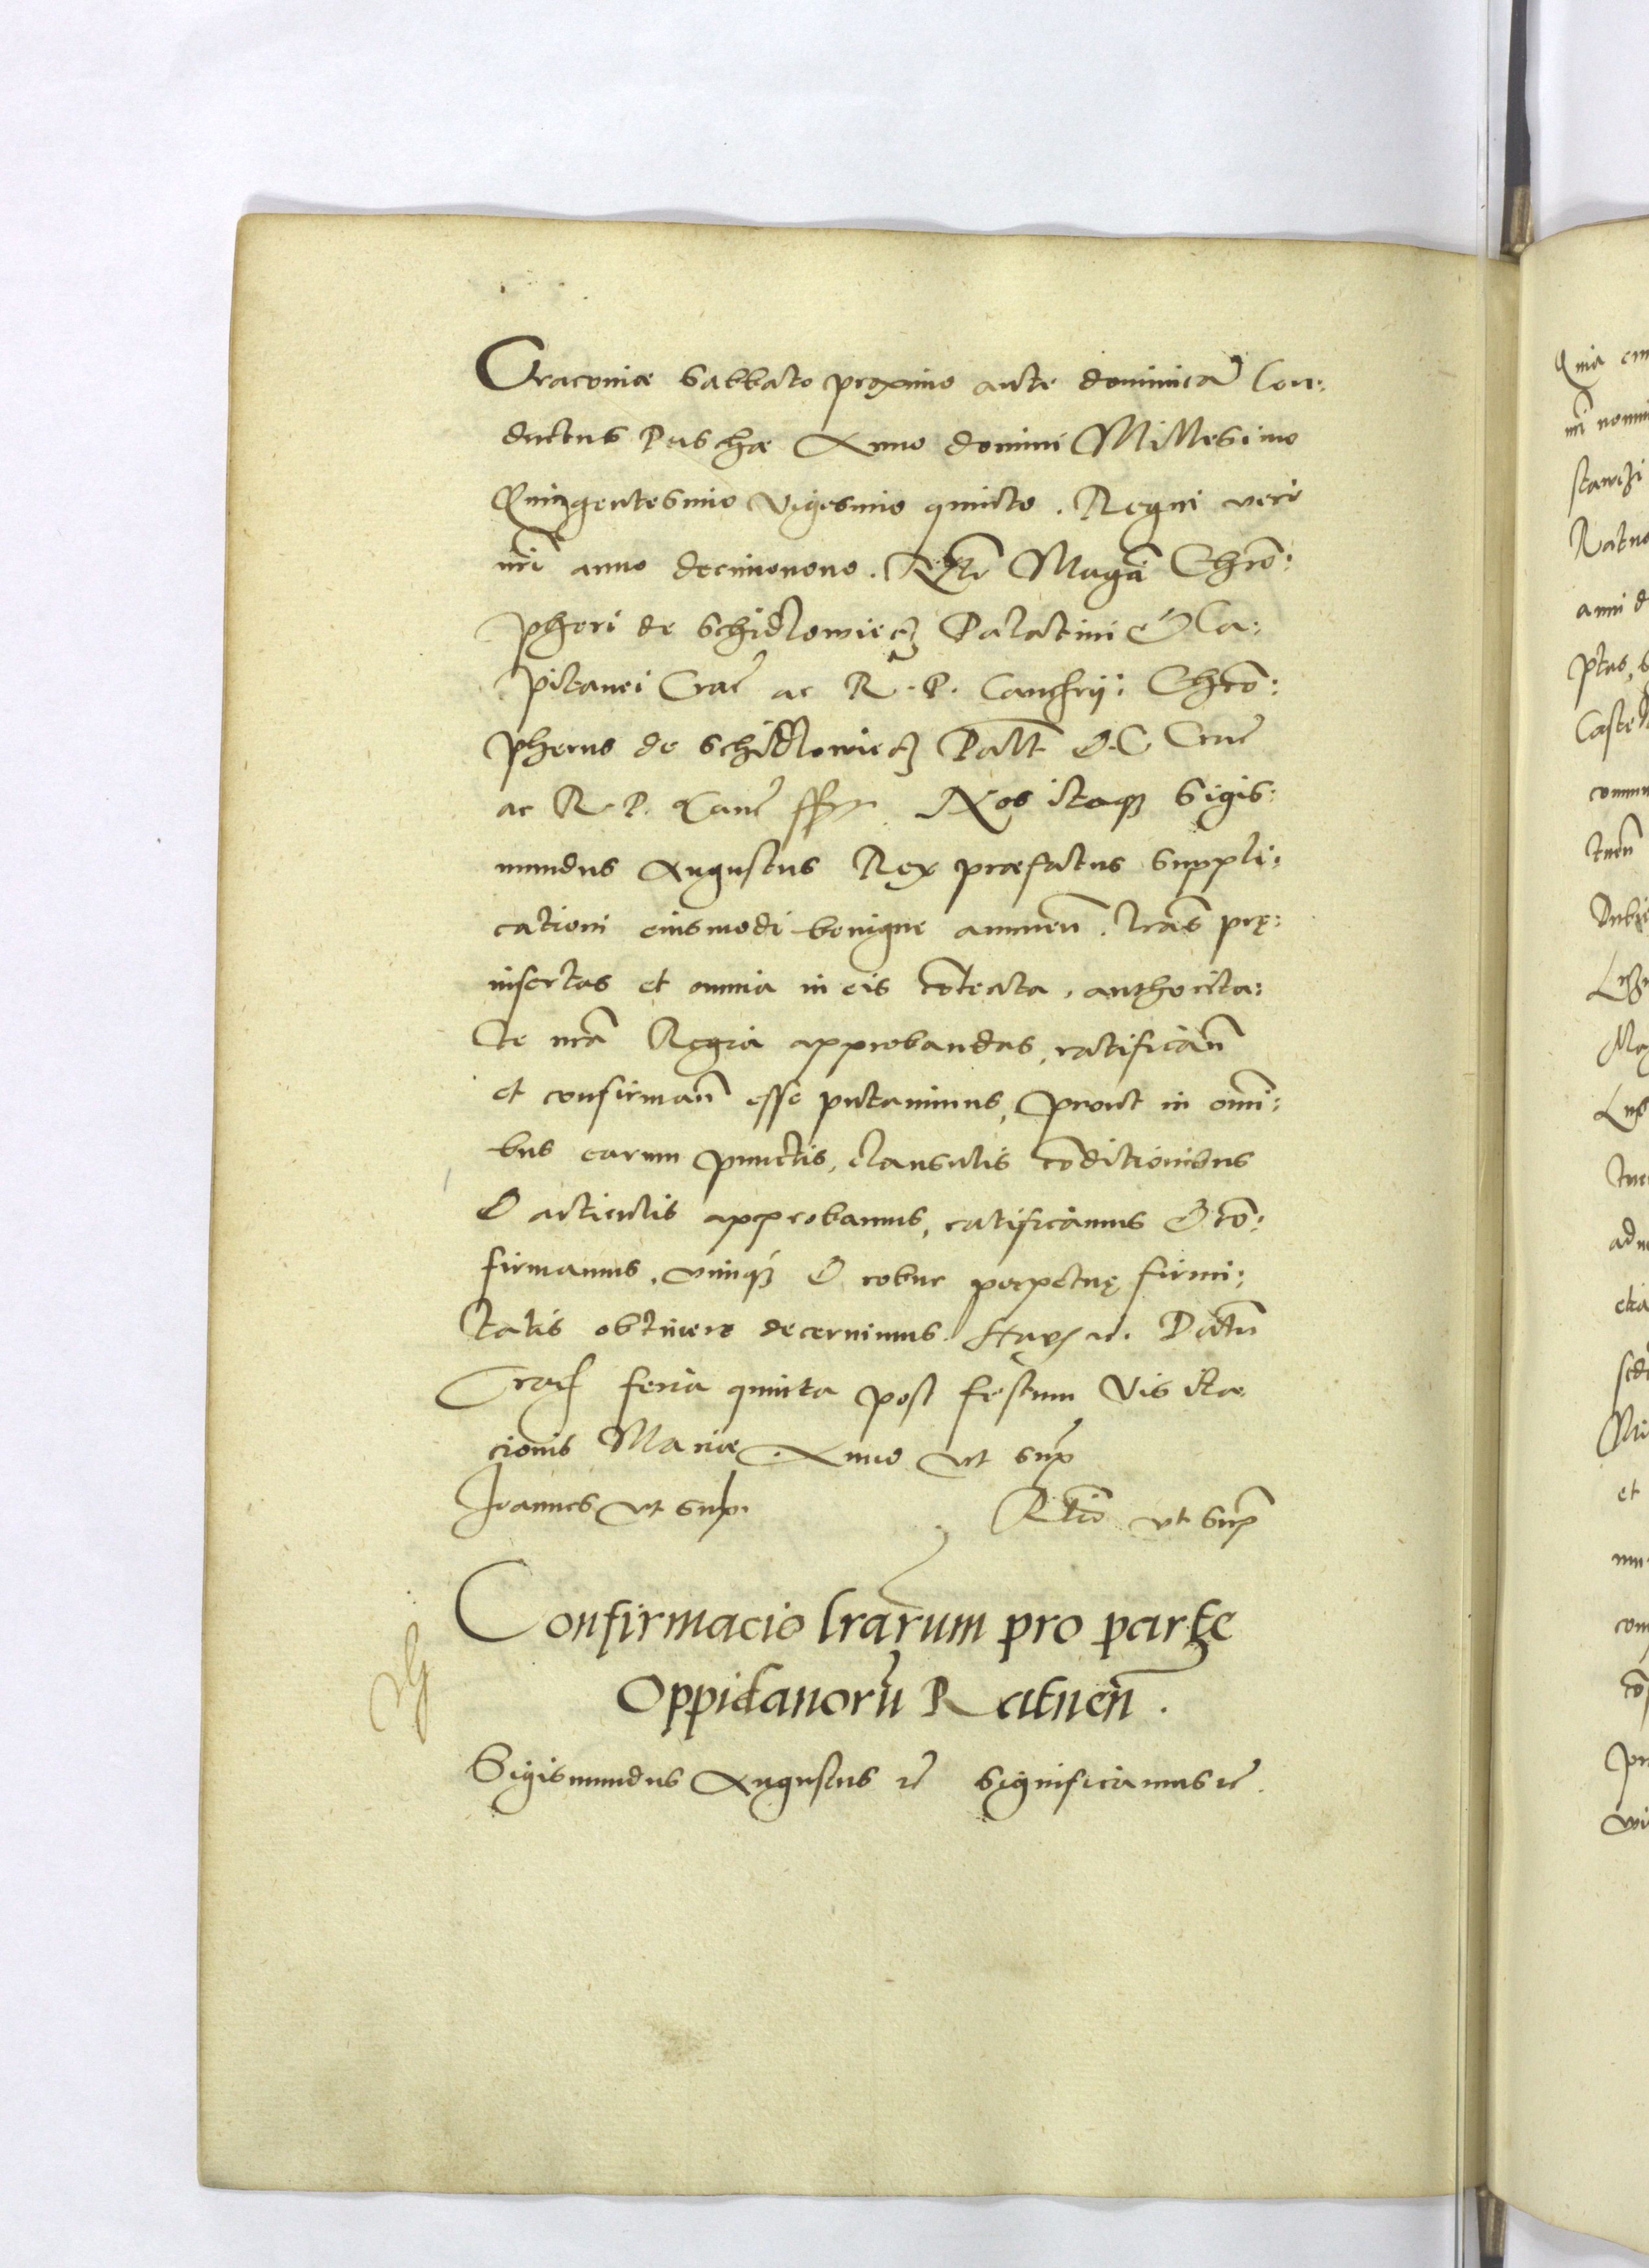 Cracoviæ Sabbato proximo ante dominicā Con:
ductus Paschæ Anno domini Millesimo
Quingentesimo Vigesimo quinto. Regni vero
nr̄i anno decimonono. Rel̄tio Magcī Chr̄o:
pheri de Schidlowiecz Palatini & Ca:
pitanei Crac̄ ac R. P. Canc̄rij: Chr̄o:
pherus de Schidlowiecz Pallt̄ & C Crac̄
ac R. P. Canc̄ sspt. Nos itaqʒ Sigis:
mundus Augustus Rex præfatus suppli:
cationi eiusmodi benigne annuen̄. Lrās prę:
insertas et omnia in eis cōtenta, authorita:
te nrā Regia approbandas, ratifican̄
et confirman̄ esse putavimus, prout in omī:
bus earum punctis, clausulis cōditionibus
& articulis approbamus, ratificamus & cō:
firmamus, vimqʒ & robur perpetuę firmi:
tatis obtinere decernimus. Harʒ ꝛc. Datū
Crac̄ feria quinta post festum Visita
cionis Mariæ. Anno ut sup̄
Ioannes ut sup.
Rl̄tio ut sup̄
Confirmacio lrārum pro parte
Oppidanorū Ratnen̄.
Sigismundus Augustus ꝛc̄ significamus ꝛc̄.